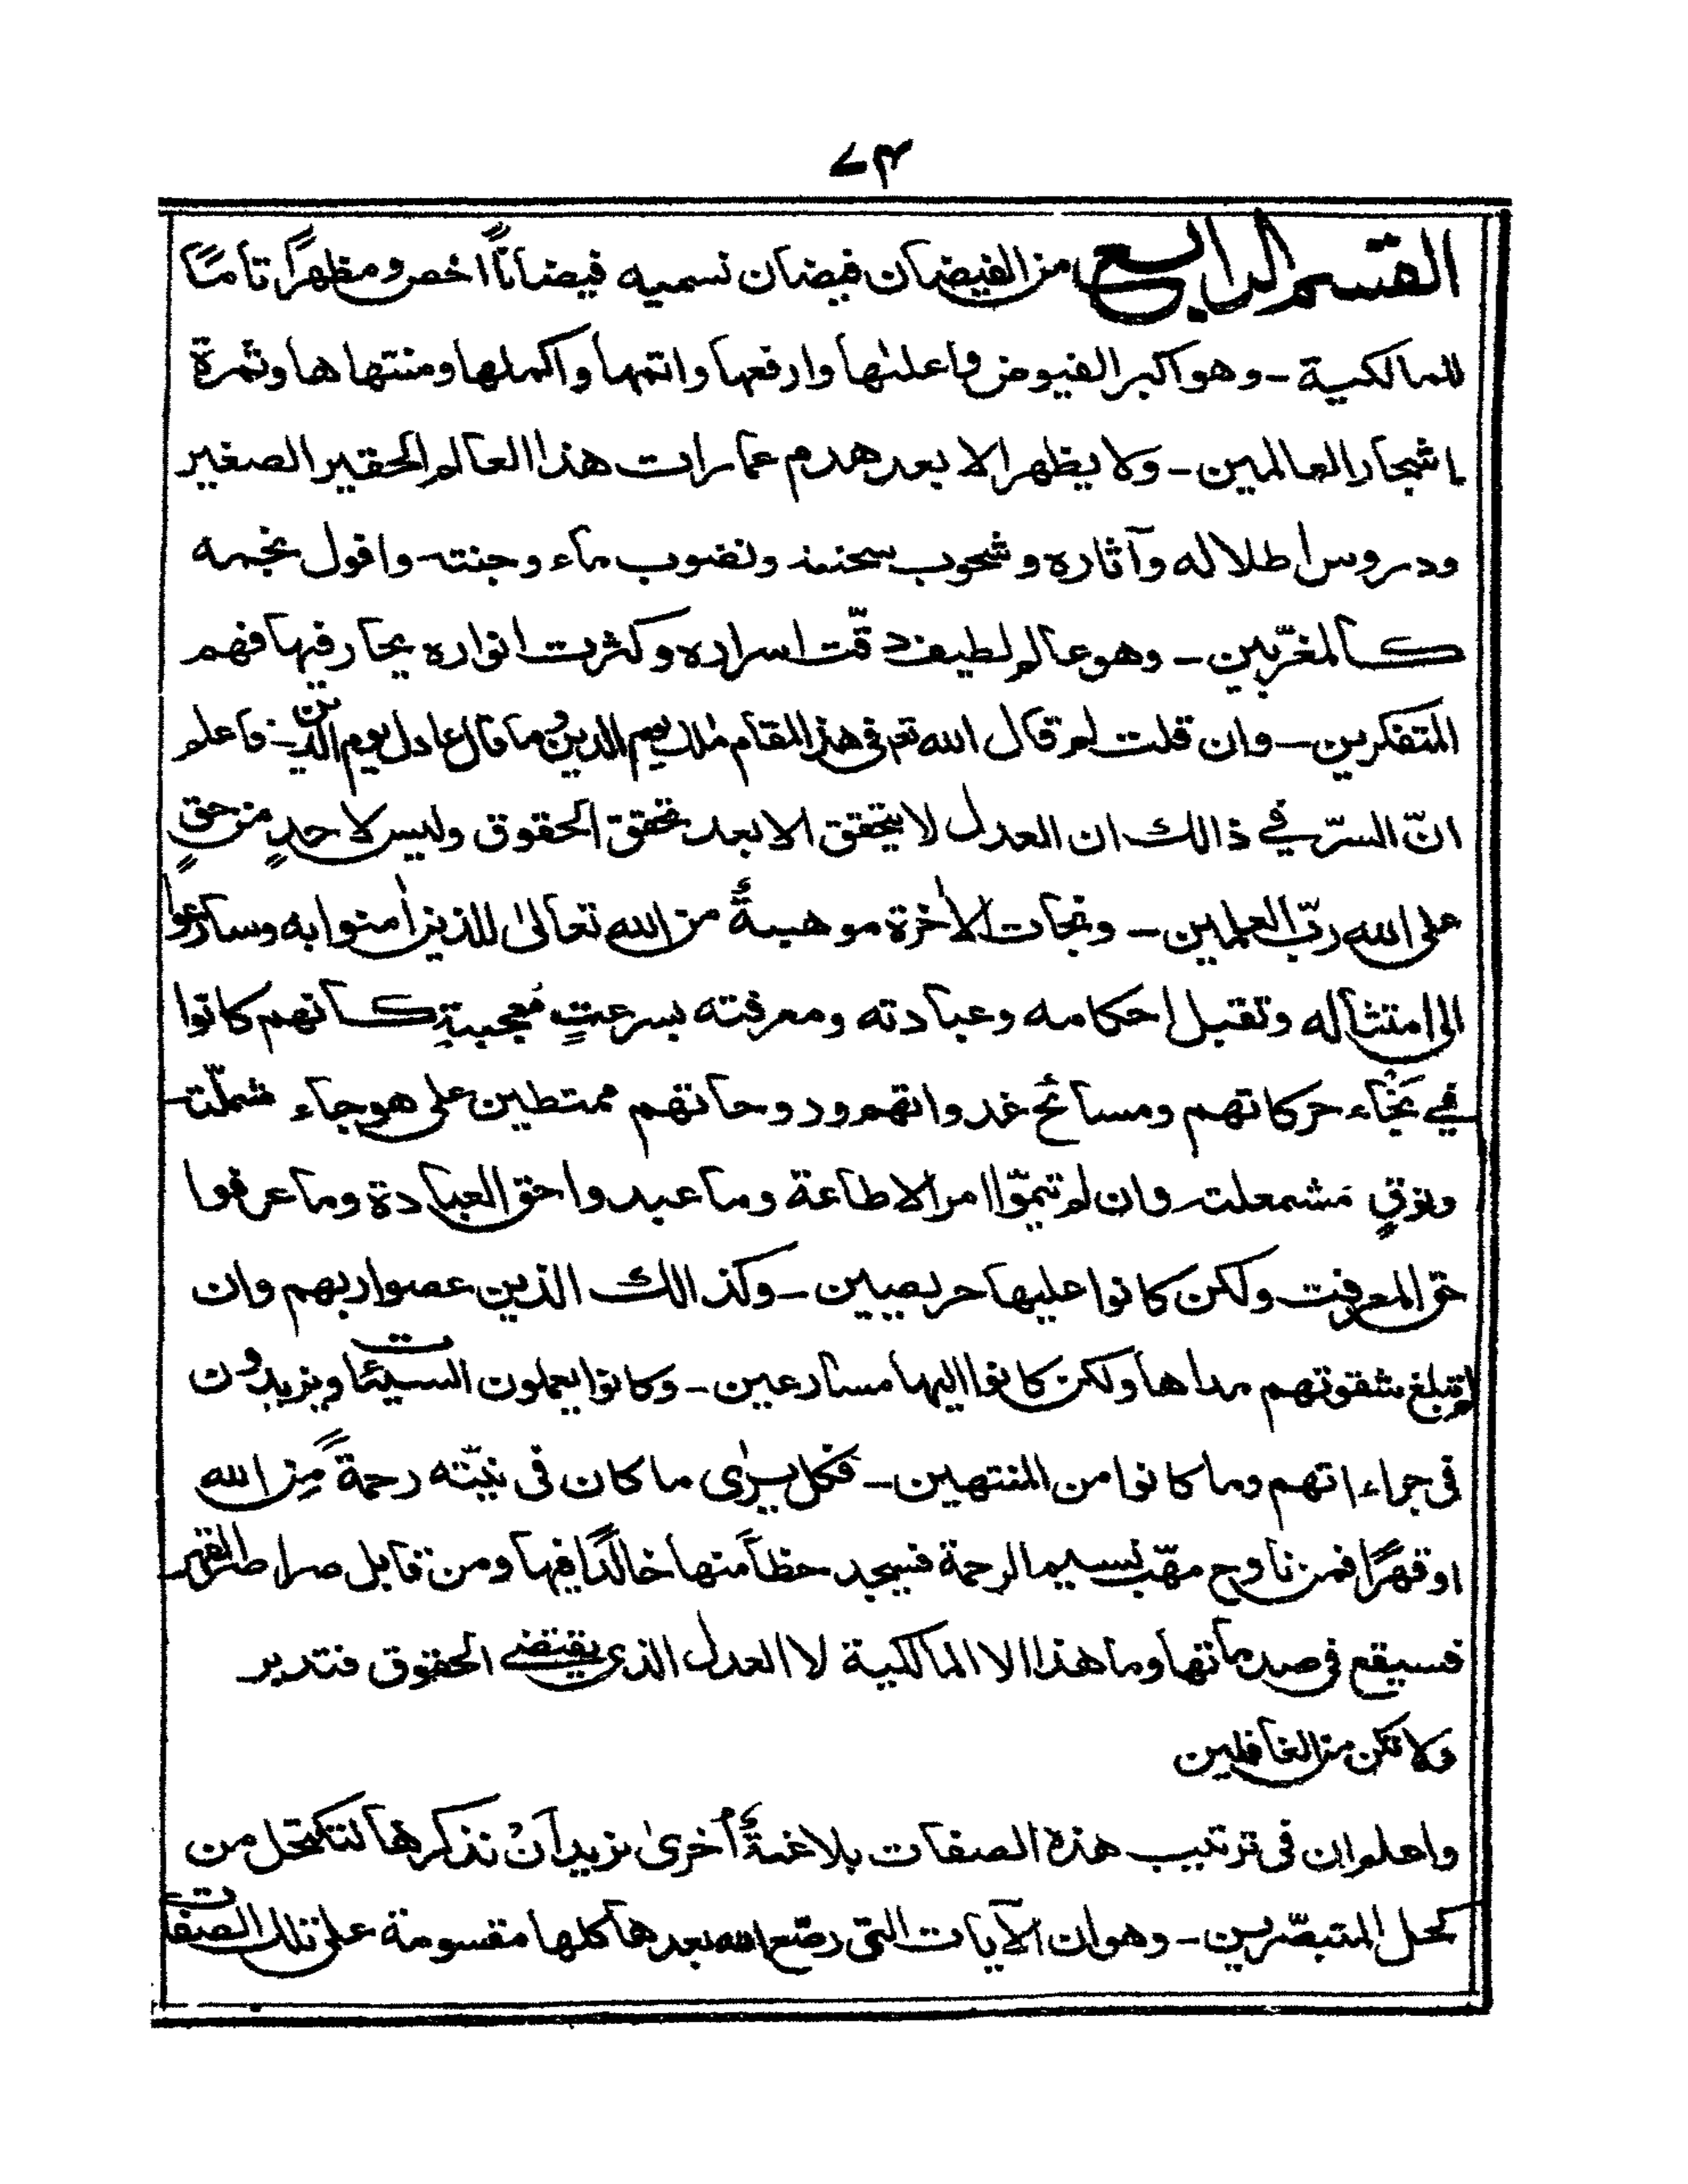 ۷۴
القسم الرابع من الفيضان فيضان نسميه فيضاناً اخص ومظهراً تامًا
للمالكية ـ وهو اكبر الفيوض واعلىٰها وارفعها واتمها واكملها ومنتهاها وثمرة
اشجار العالمين ـ ولا يظهر الا بعد هدم عمارات هذا العالم الحقير الصغير
ودروس اطلاله وآثاره وشحوب سحنته ونضوب ماء وجنته وافول نجمه
كالمغرّبين ـ وهو عالم لطيف دقّت اسراره وكثرت انواره يحار فيها فهم
المتفكرين ـ وان قلت لم قال الله تع في هذا المقام مٰلك يوم الدين وما قال عادل يوم الدّين ـ فاعلم
انّ السرّ في ذالك ان العدل لا يتحقق الا بعد تحقق الحقوق وليس لاحدٍ من حقٍ
على الله ربّ العٰلمين ـ ونجات الاٰخرة موهبةٌ من الله تعالىٰ للذين اٰمنوا به وسارعوا
الى امتثاله وتقبل احكامه وعبادته ومعرفته بسرعتٍ مُعجبةٍ كانهم كانوا
في نَجْاء حركاتهم ومسائح غدواتهم وروحاتهم ممتطين على هوجاء شملّت
ونوقٍ مَشمعلت وان لم يتمّوا امر الاطاعة وما عبدوا حق العبادة وما عرفوا
حق المعرفت ولكن كانوا عليها حريصين ـ وكذالك الذين عصوا ربهم وان
لم تبلغ شقوتهم مداها ولكن كانوا اليها مسارعين ـ وكانوا يعملون السيئات ويزيدون
في جراءاتهم وما كانوا من المنتهين ـ فكل يرىٰ ما كان في نيّته رحمةً مِن الله
او قهرًا فمن ناوح مهّب نسيم الرحمة فسيجد حظاً منها خالدًا فيها ومن قابل صراط القهر
فسيقع في صدماتها وما هذا الا المالكية لا العدل الذي يقتضى الحقوق فتدبر
ولا تكن من الغافلين
واعلم ان في ترتيب هذه الصفات بلاغةٌ أُخرىٰ نريد اَنْ نذكرها لتكتحل من
كحل المتبصّرين ـ وهو ان الآيات التي رصّع الله بعدها كلها مقسومة على تلك الصفات